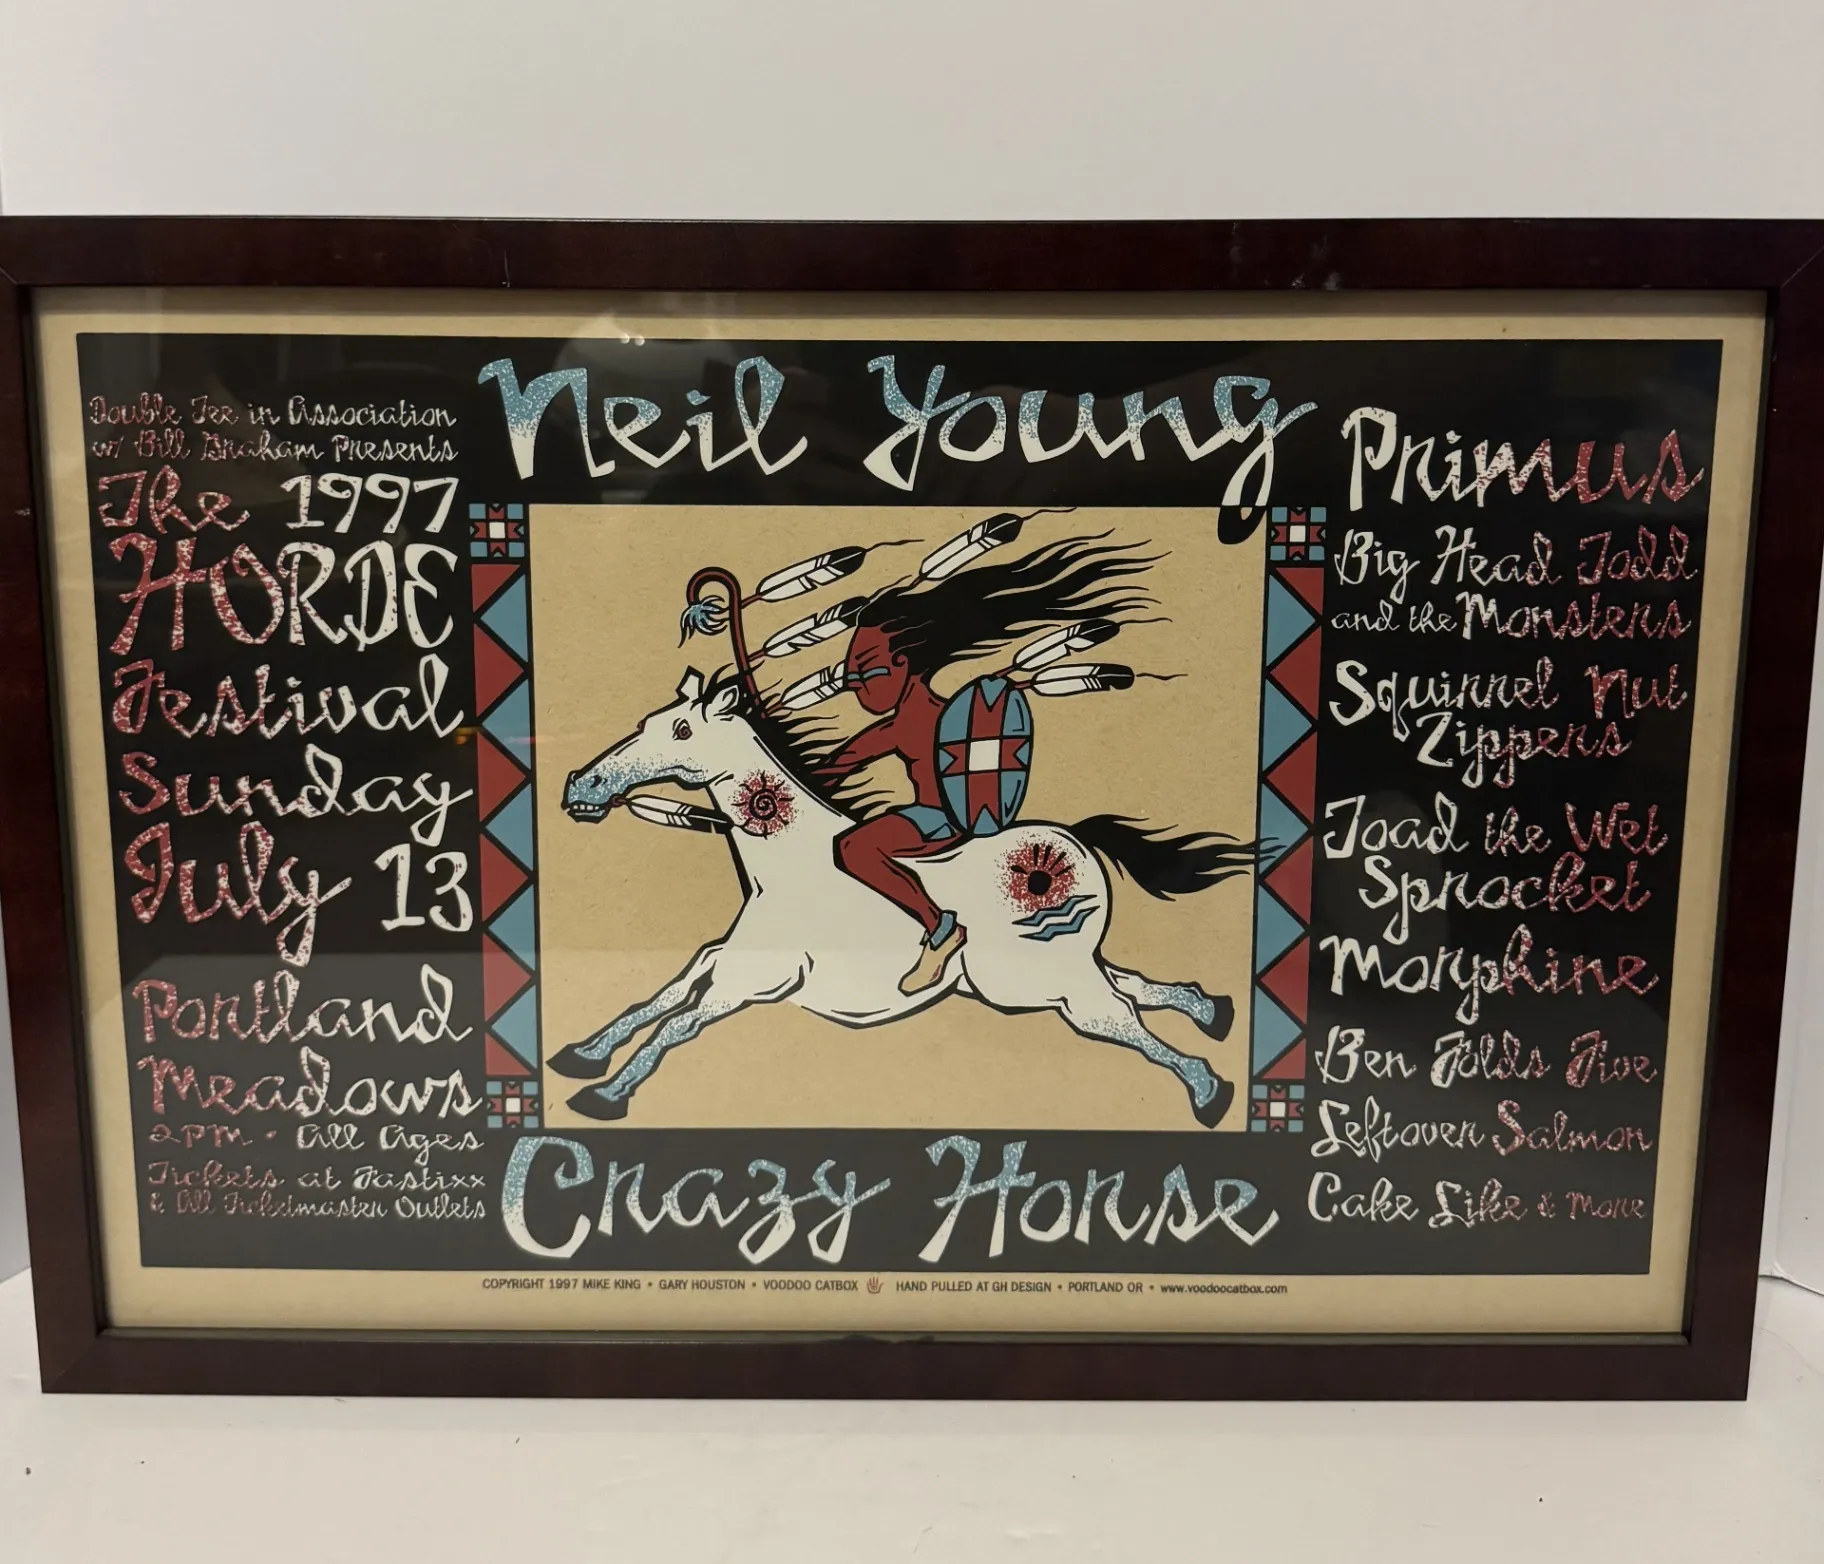 Neil Young
Double Tee in Association
w/ Bill Graham Presents
The 1997
HORDE
Festival
Sunday
July 13
Portland
Meadows
2PM • All Ages
Tickets at Fastixx
& All Ticketmaster Outlets
Primus
Big Head Todd
and the Monsters
Squirrel Nut
Zippers
Toad the Wet
Sprocket
Morphine
Ben Folds Five
Leftover Salmon
Cake Like & More
Crazy Horse
COPYRIGHT 1997 MIKE KING • GARY HOUSTON • VOODOO CATBOX HAND PULLED AT GH DESIGN • PORTLAND OR • www.voodoocatbox.com